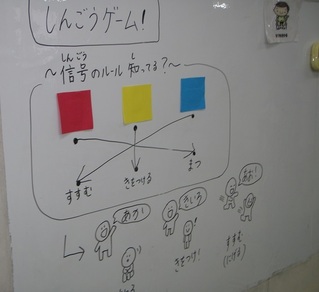 しんごうゲーム!
しんごう し
~信号のルール知ってる?~
すすむ
きをつける
まつ
あか!
きいろ
あお!
きをつけ!
すすむ
(にげる)